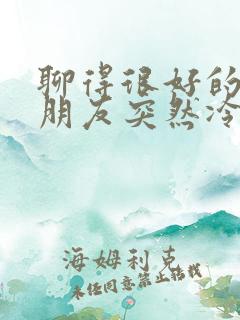 聊得很好的
朋友突然冷
海姆利克
未经同意禁止转载